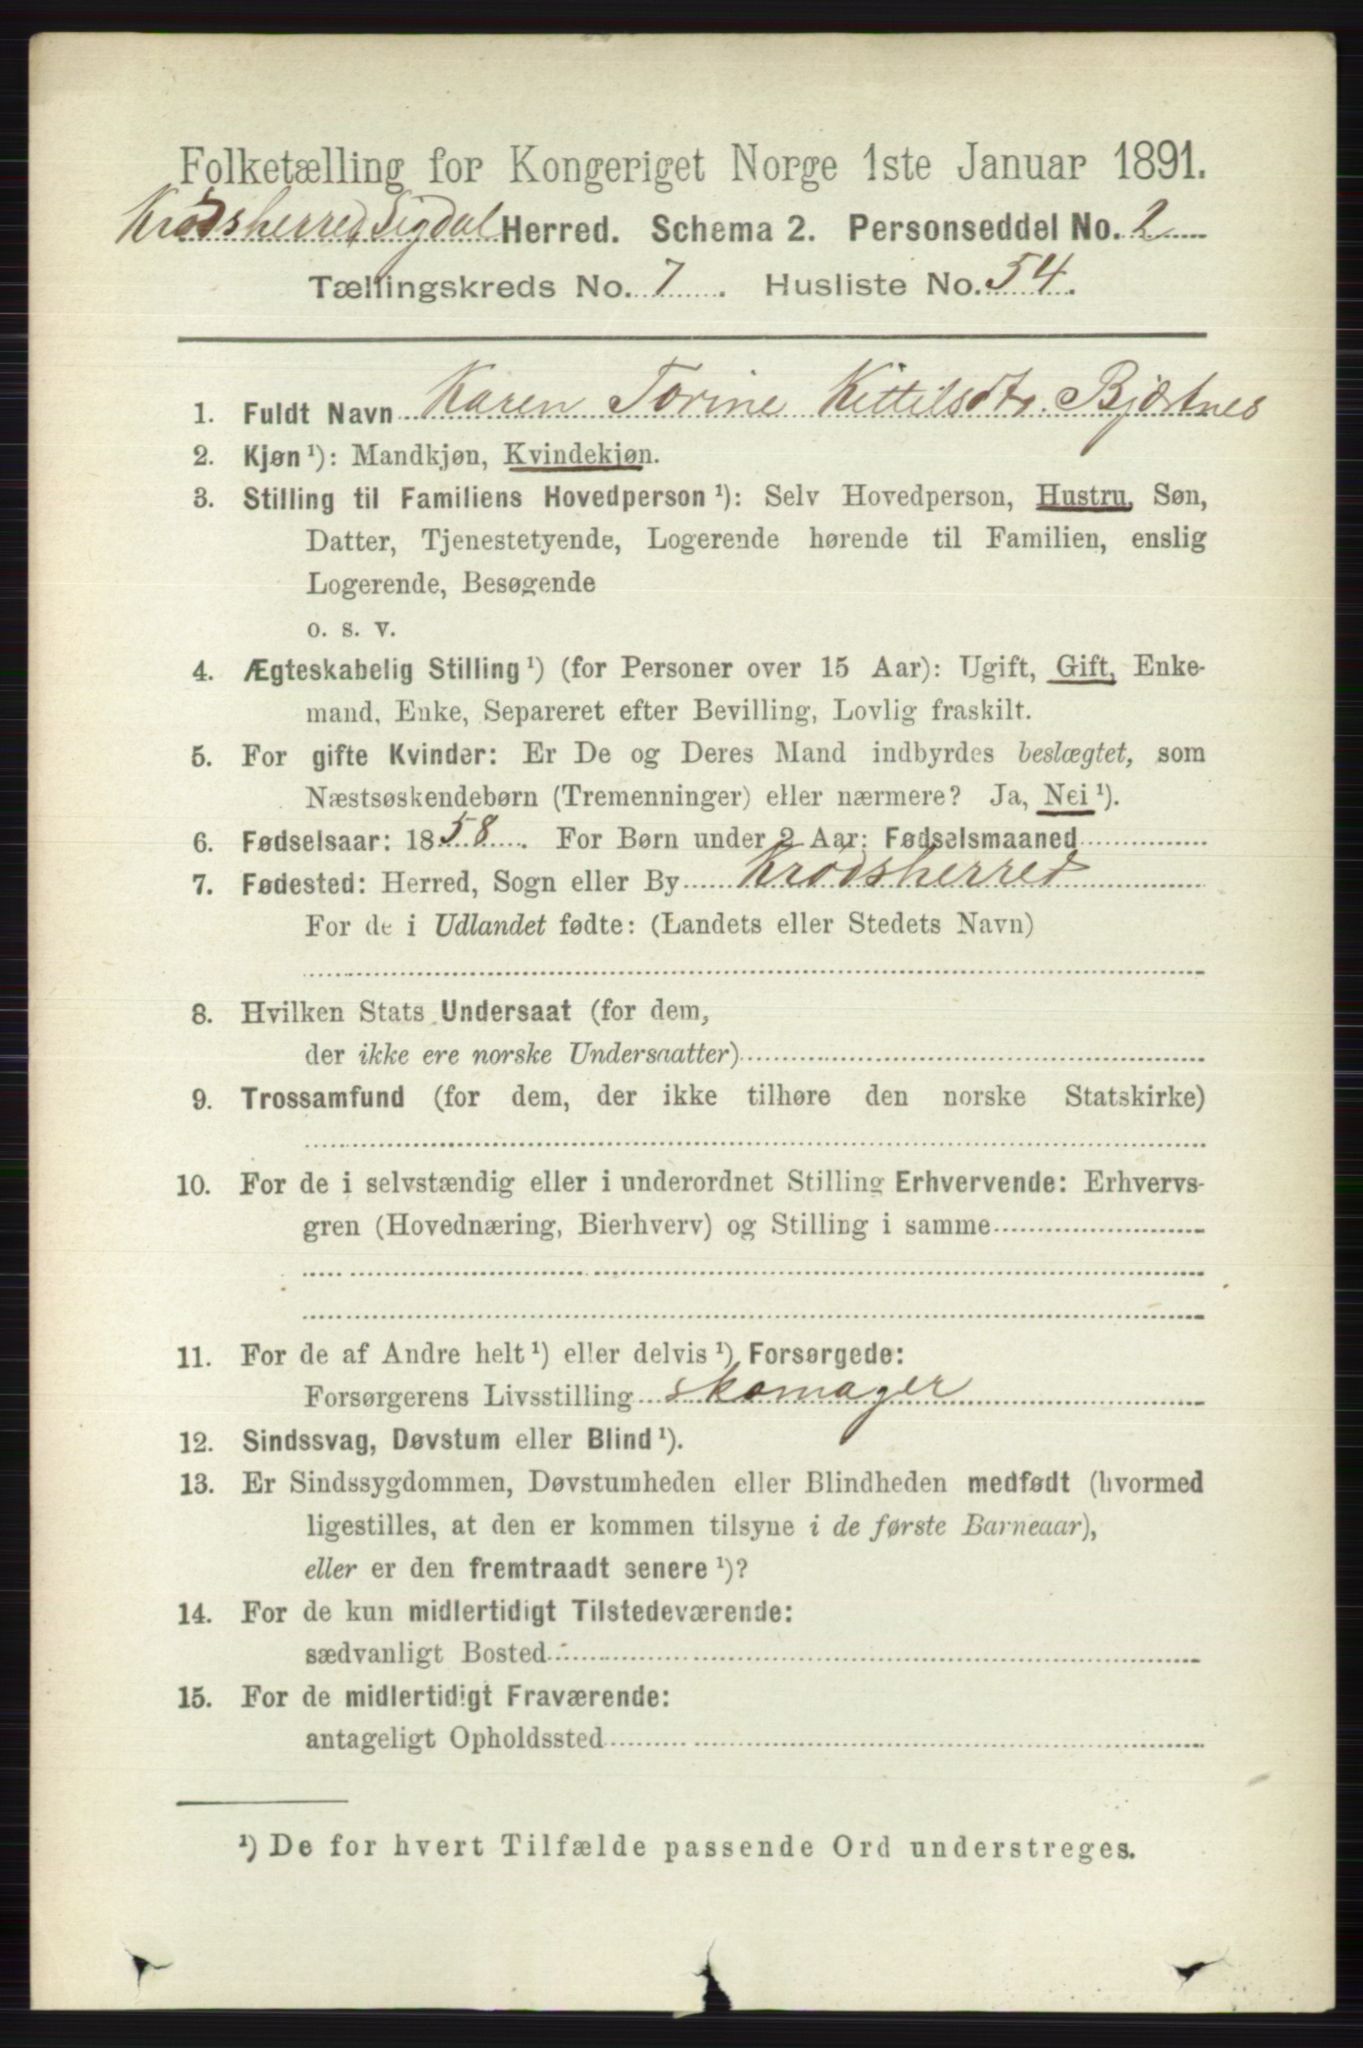 Folketælling for Kongeriget Norge 1ste Januar 1891.
Krødsherred, Sigdal Herred. Schema 2. Personseddel No. 2
Tællingskreds No. 7. Husliste No. 54.
1. Fuldt Navn Karen Torine Kittilsdtr. Bjørtnes
2. Kjøn ¹): Mandkjøn, Kvindekjøn.
3. Stilling til Familiens Hovedperson ¹): Selv Hovedperson, Hustru, Søn,
Datter, Tjenestetyende, Logerende hørende til Familien, enslig
Logerende, Besøgende
o. s. v.
4. Ægteskabelig Stilling ¹) (for Personer over 15 Aar): Ugift, Gift, Enke-
mand, Enke, Separeret efter Bevilling, Lovlig fraskilt.
5. For gifte Kvinder: Er De og Deres Mand indbyrdes beslægtet, som
Næstsøskendebørn (Tremenninger) eller nærmere? Ja, Nei ¹).
6. Fødselsaar: 1858. For Børn under 2 Aar: Fødselsmaaned
7. Fødested: Herred, Sogn eller By Krødsherred
For de i Udlandet fødte: (Landets eller Stedets Navn)
8. Hvilken Stats Undersaat (for dem,
der ikke ere norske Undersaatter)
9. Trossamfund (for dem, der ikke tilhøre den norske Statskirke)
10. For de i selvstændig eller i underordnet Stilling Erhvervende: Erhvervs-
gren (Hovednæring, Bierhverv) og Stilling i samme
11. For de af Andre helt ¹) eller delvis ¹) Forsørgede:
Forsørgerens Livsstilling skomager
12. Sindssvag, Døvstum eller Blind ¹).
13. Er Sindssygdommen, Døvstumheden eller Blindheden medfødt (hvormed
ligestilles, at den er kommen tilsyne i de første Barneaar),
eller er den fremtraadt senere ¹)?
14. For de kun midlertidigt Tilstedeværende:
sædvanligt Bosted
15. For de midlertidigt Fraværende:
antageligt Opholdssted
¹) De for hvert Tilfælde passende Ord understreges.